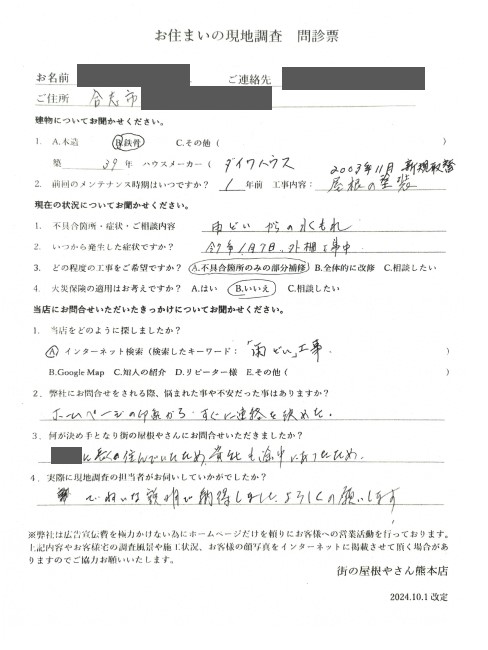 お住まいの現地調査 問診票
お名前 ご連絡先
ご住所 合志市
建物についてお聞かせください。
1. A.木造 B.鉄骨 C.その他( )
築 39 年 ハウスメーカー( ダイワハウス
2003年11月 新規取替
2. 前回のメンテナンス時期はいつですか? 1 年前 工事内容: 屋根の塗装
現在の状況についてお聞かせください。
1. 不具合箇所・症状・ご相談内容 雨どいからの水もれ
2. いつから発生した症状ですか? 今年1月7日、外棚工事中
3. どの程度の工事をご希望ですか? A.不具合箇所のみの部分補修 B.全体的に改修 C.相談したい
4. 火災保険の適用はお考えですか? A.はい B.いいえ C.相談したい
当店にお問合せいただいたきっかけについてお聞かせください。
1. 当店をどのように探しましたか?
A インターネット検索(検索したキーワード: 「雨どい」工事 )
B.Google Map C.知人の紹介 D.リピーター様 E.その他( )
2. 弊社にお問合せをされる際、悩まれた事や不安だった事はありますか?
ホームページの印象から すぐに連絡を決めた.
3. 何が決め手となり街の屋根やさんにお問合せいただきましたか?
に 住んでいたため、貴社も途中にあったため.
4. 実際に現地調査の担当者がお伺いしていかがでしたか?
ていねいな説明で納得しました、よろしくお願いします
※弊社は広告宣伝費を極力かけない為にホームページだけを頼りにお客様への営業活動を行っております。
上記内容やお客様宅の調査風景や施工状況、お客様の顔写真をインターネットに掲載させて頂く場合があ
りますのでご協力お願いいたします。
街の屋根やさん熊本店
2024.10.1 改定